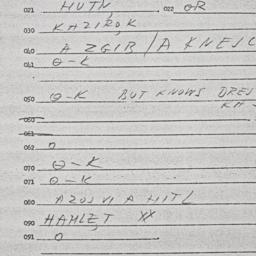 021 HUTN, 022 OR
030 KAZIROK
040 A ZGIB / A KNEJC
041 O-K
050 O-K BUT KNOWS DREJ
KA
060
061
062 O
070 O-K
071 O-K
080 AZOJ VI A HITL
090 HAMLET XX
091 O